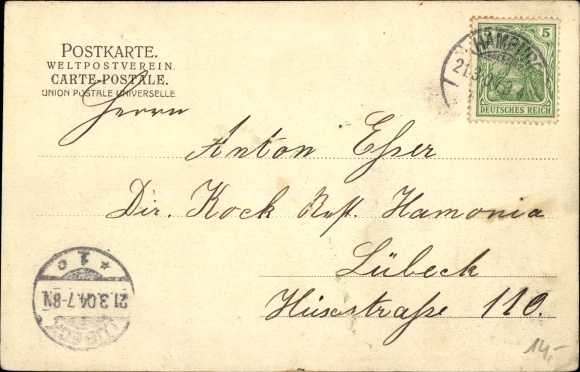 POSTKARTE.
WELTPOSTVEREIN
CARTE-POSTALE.
UNION POSTALE UNIVERSELLE
5
HAMBURG
21.3.04
DEUTSCHES REICH
Herrn
Anton Esser
Dir. Kock Rest. Hamonia
Lübeck
Hüxstraße 110.
* 1 o
21.3.04.7-8N
LÜBECK
14,-